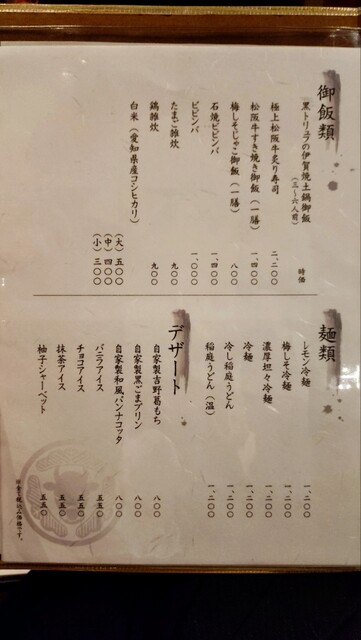 御飯類
黒トリュフの伊賀焼土鍋御飯（三〜六人前） 時価
極上松阪牛炙り寿司 二、二〇〇
松阪牛すき焼き御飯（一膳） 一、四〇〇
梅しそじゃこ御飯（一膳） 八〇〇
石焼ビビンバ 一、四〇〇
ビビンバ 一、〇〇〇
たまご雑炊 九〇〇
鶏雑炊 九〇〇
白米（愛知県産コシヒカリ）
（大）五〇〇
（中）四〇〇
（小）三〇〇
麺類
レモン冷麺 一、二〇〇
梅しそ冷麺 一、二〇〇
濃厚坦々冷麺 一、二〇〇
冷麺 一、二〇〇
冷し稲庭うどん 一、二〇〇
稲庭うどん（温） 一、二〇〇
デザート
自家製吉野葛もち 八〇〇
自家製黒ごまプリン 八〇〇
自家製和風パンナコッタ 八〇〇
バニラアイス 五五〇
チョコアイス 五五〇
抹茶アイス 五五〇
柚子シャーベット 五五〇
※全て税込み価格です。